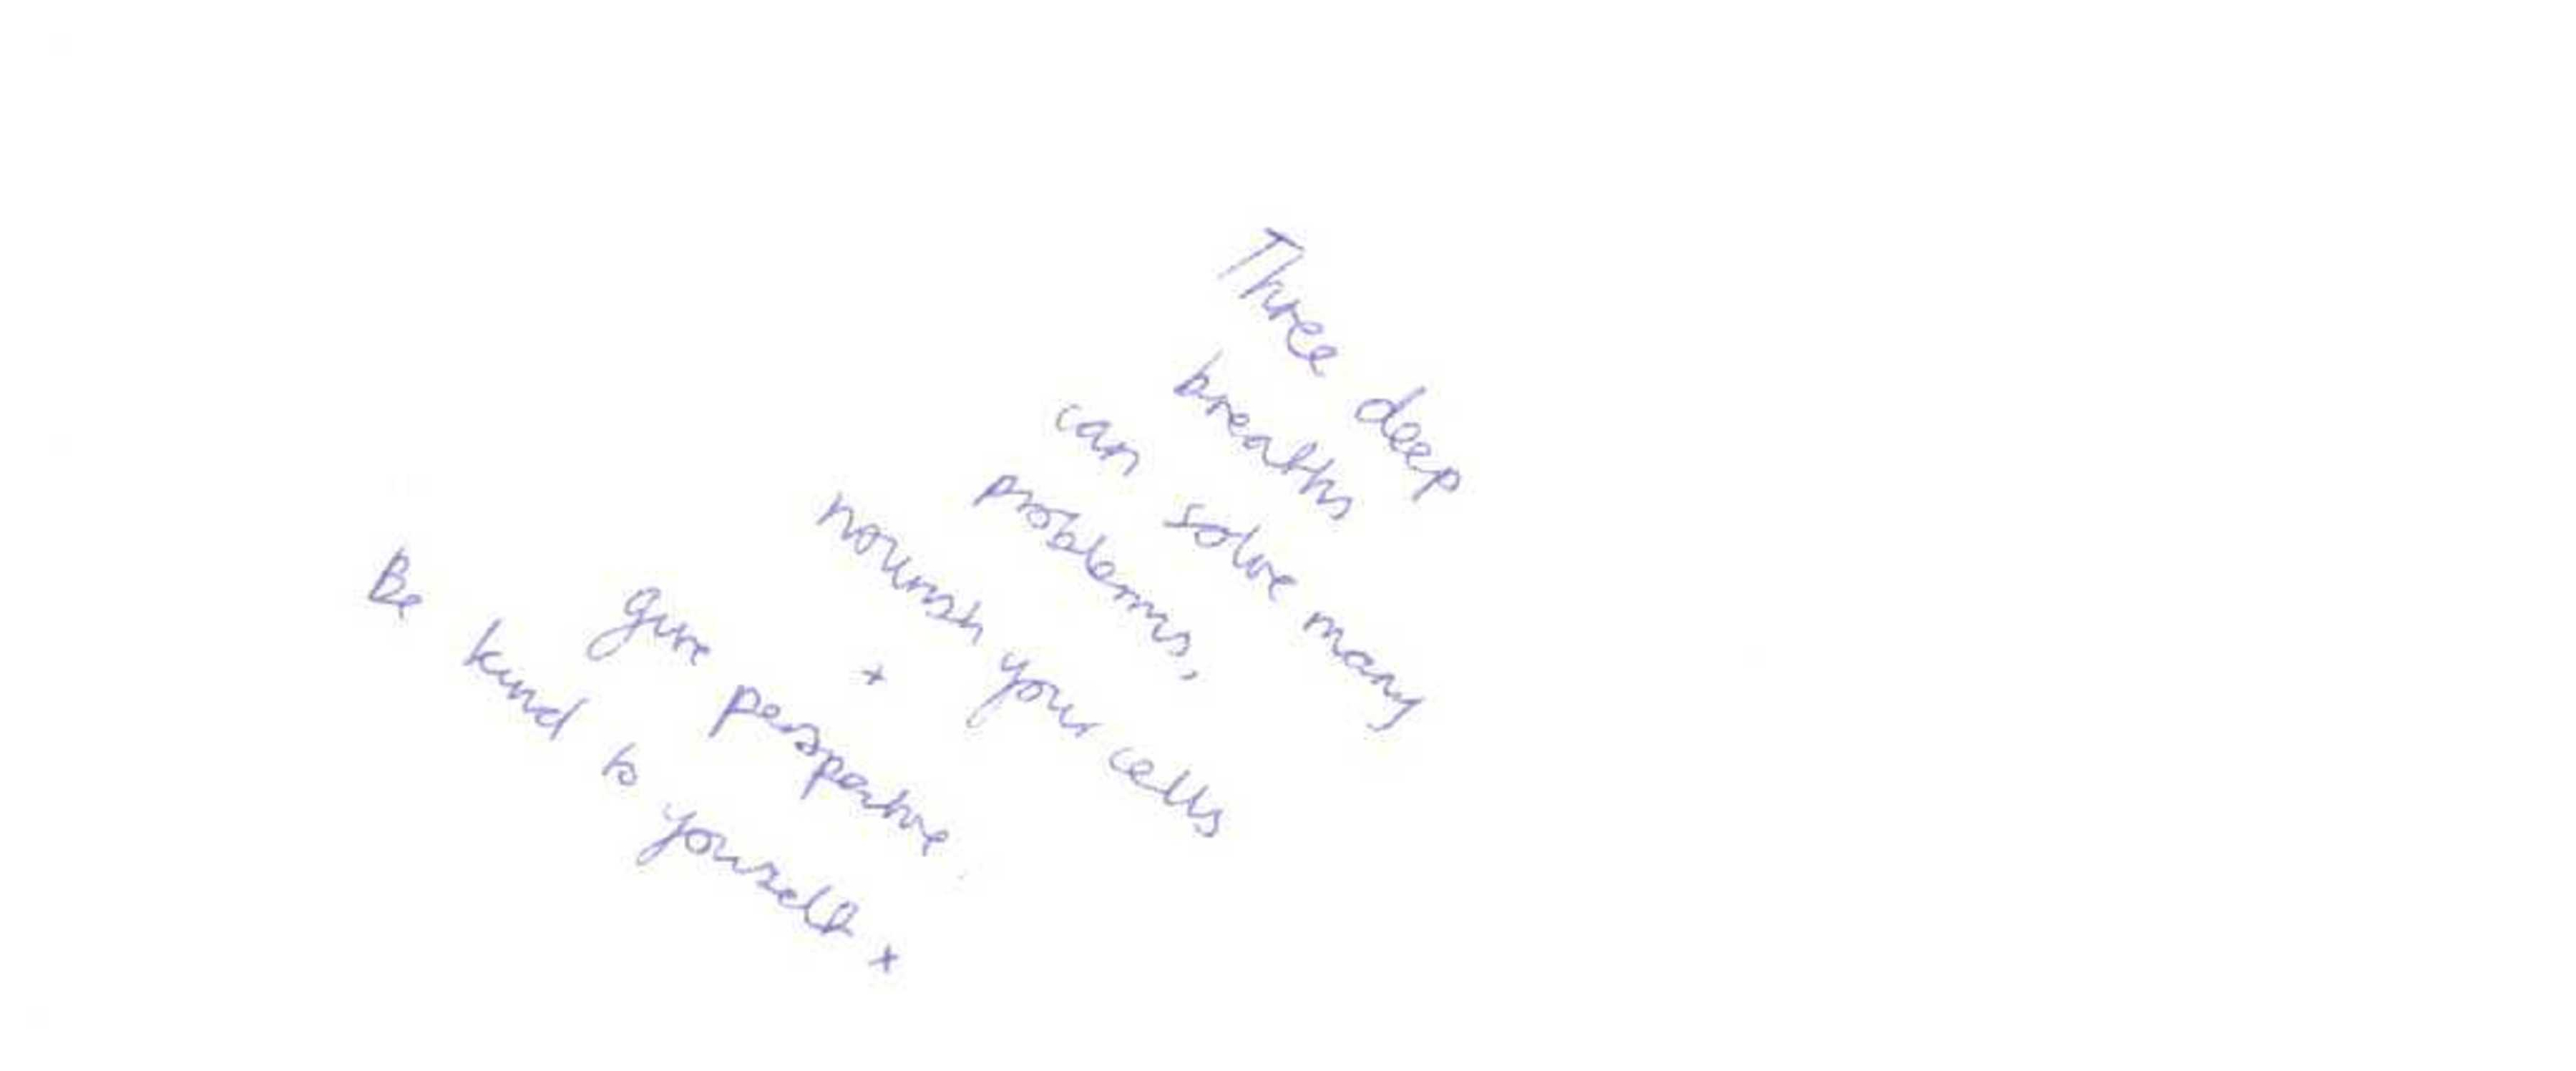 Three deep
breaths
can solve many
problems,
nourish your cells
+
give perspective.
Be kind to yourself x